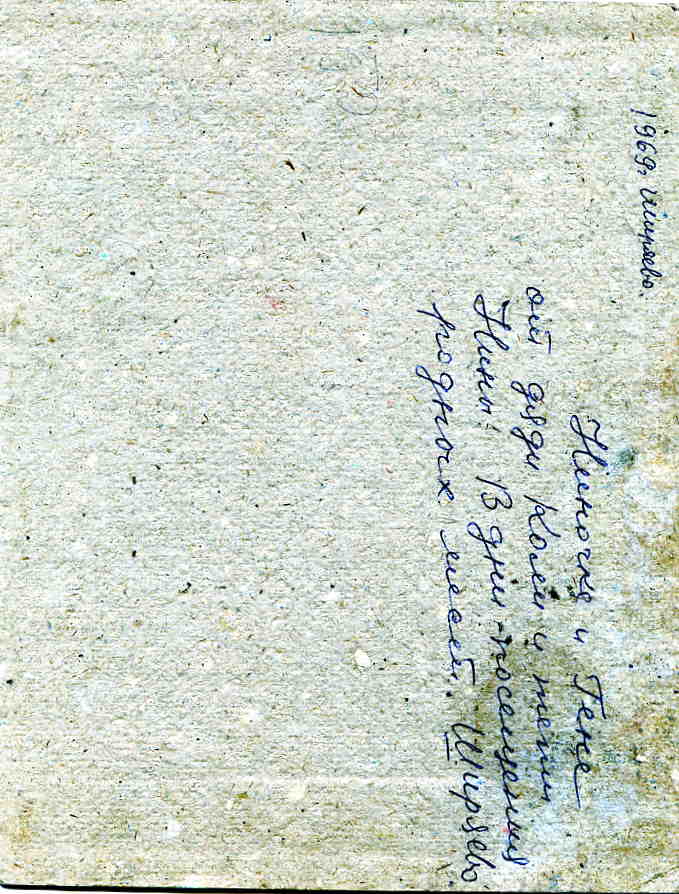 1969г Ширяево.
Ниночке и Гене
от дяди Коли и тети
Нины. В дни посещения
родных мест. Ширяево